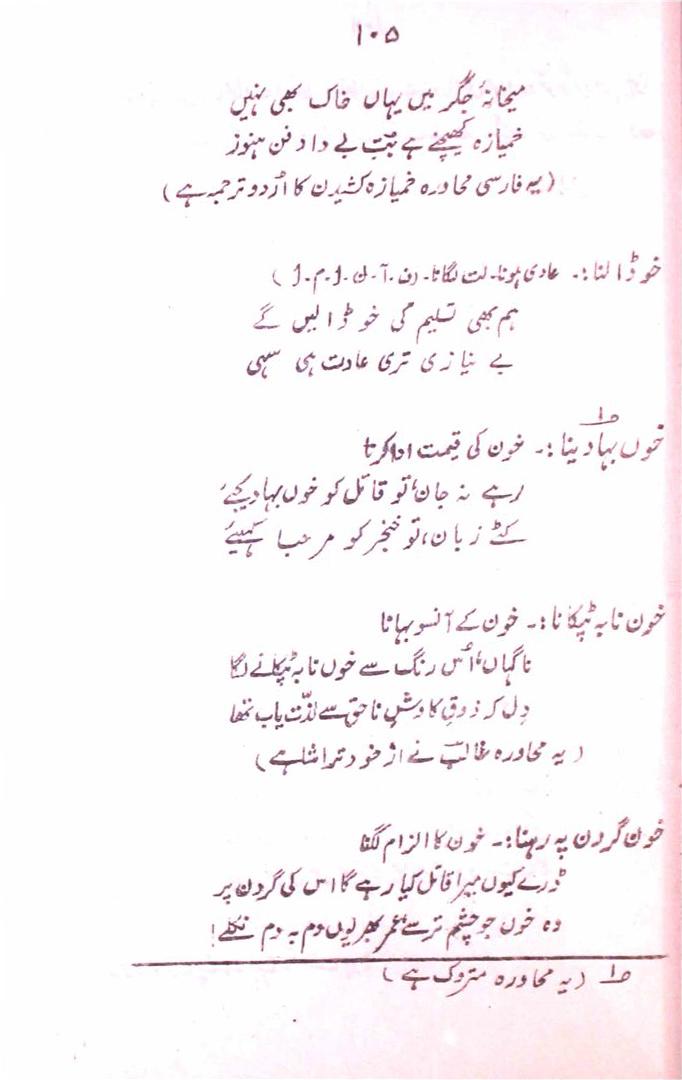 ۱۰۵
میخانۂ جگر میں یہاں خاک بھی نہیں
خمیازہ کھینچے ہے بتِ بے داد فن ہنوز
(یہ فارسی محاورہ خمیازہ کشیدن کا اُردو ترجمہ ہے)
خو ڈالنا:۔ عادی ہونا۔ لت لگانا۔
ہم بھی تسلیم کی خو ڈالیں گے
بے نیازی تری عادت ہی سہی
خوں بہا دینا:۔ خون کی قیمت ادا کرنا
رہے نہ جان، تو قاتل کو خوں بہا دیجئے
کٹے زبان، تو خنجر کو مرحبا کہیئے
خون نابہ ٹپکانا:۔ خون کے آنسو بہانا
ناگہاں، اُس رنگ سے خوں نابہ ٹپکانے لگا
دِل کہ ذوقِ کاوشِ ناخن سے لذّت یاب تھا
(یہ محاورہ غالبؔ نے از خود تراشا ہے)
خون گردن پہ رہنا:۔ خون کا الزام لگنا
ڈرے کیوں میرا قاتل کیا رہے گا اس کی گردن پر
وہ خون جو چشمِ تر سے عمر بھر یوں دم بہ دم نکلے!
ص۱ (یہ محاورہ متروک ہے)